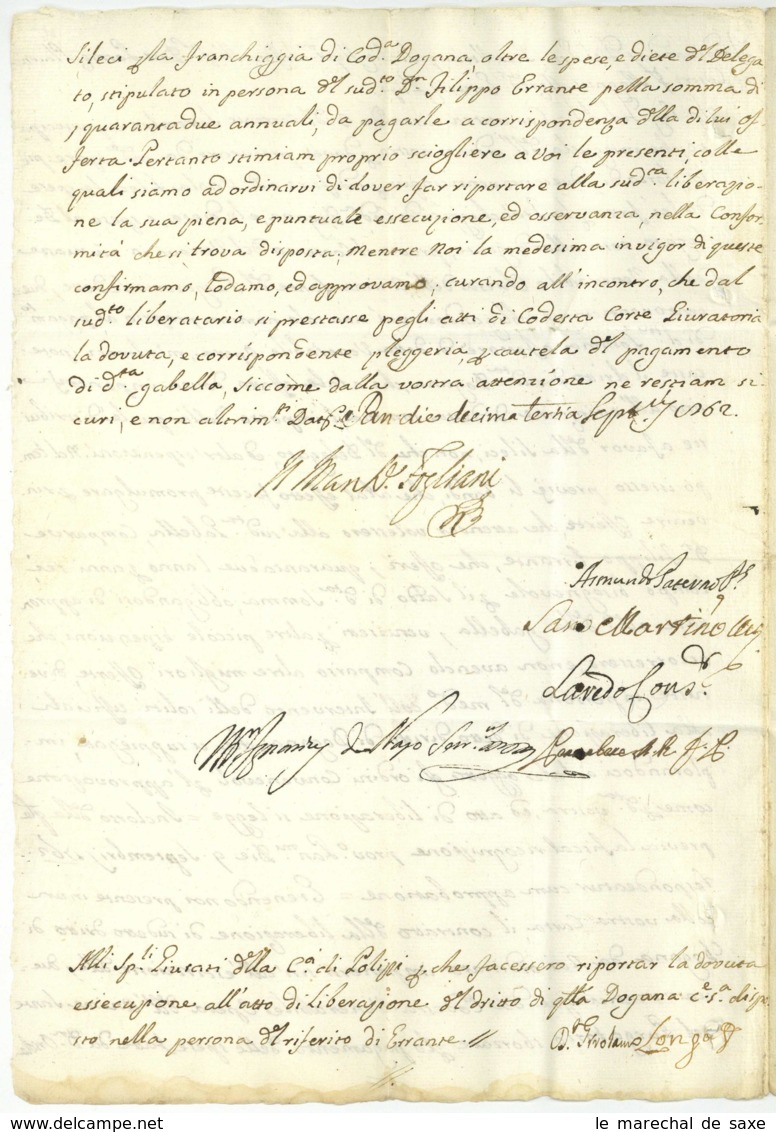 Sileci p la franchiggia di Cod.a Dogana, oltre le spese, e diete del Delega
to, stipulato in persona del sud.to D.n Filippo Errante pella somma di
quarantadue annuali, da pagarle a corrispondenza della di lui of
ferta. Pertanto stimiam proprio sciogliere a voi le presenti, colle
quali siamo ad ordinarvi di dover far riportare alla sud.ta liberazio-
ne la sua piena, e puntuale essecuzione, ed osservanza, nella Confor
mità che si trova disposta; mentre Noi la medesima in vigor di queste
confirmamo, lodamo, ed approvamo; curando all'incontro, che dal
sud.to liberatario si prestasse pegli atti di Codesta Corte Giuratoria
la dovuta, e corrispondente pleggeria, p cautela del pagamento
di d.ta gabella, siccome dalla vostra attenzione ne restiam si
curi, e non altrim.ti Dat. Pan. die decima tertia 1762.
Fogliani
Asmundo Paternò P.
San Martino
Laredo Cons.r
Alli Sp.li Giurati della C.a di Polizzi p che facessero riportar la dovuta
essecuzione all'atto di liberazione del dritto di q.lla Dogana c.e s.a dispo
sto nella persona del riferito di Errante. //
D. Girolamo Longo
le marechal de saxe